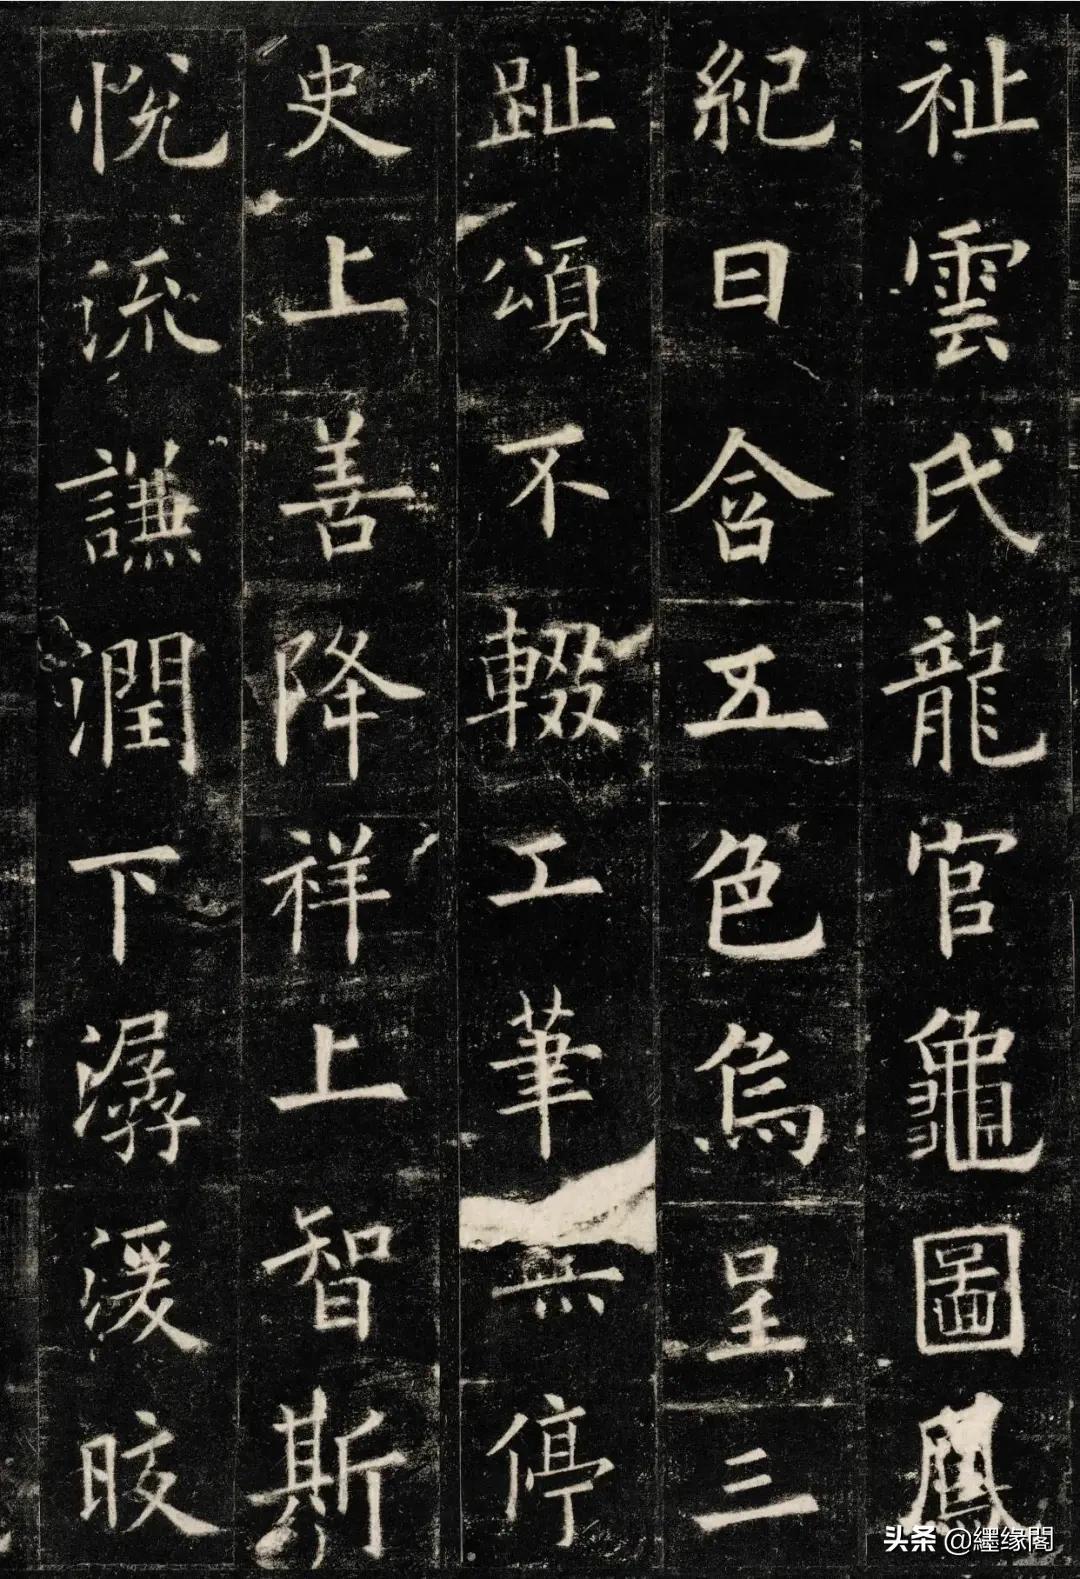 祉雲氏龍官龜圖鳳
紀日含五色烏呈三
趾頌不輟工筆無停
史上善降祥上智斯
悅流謙潤下潺湲皎
头条 @纆缘閣